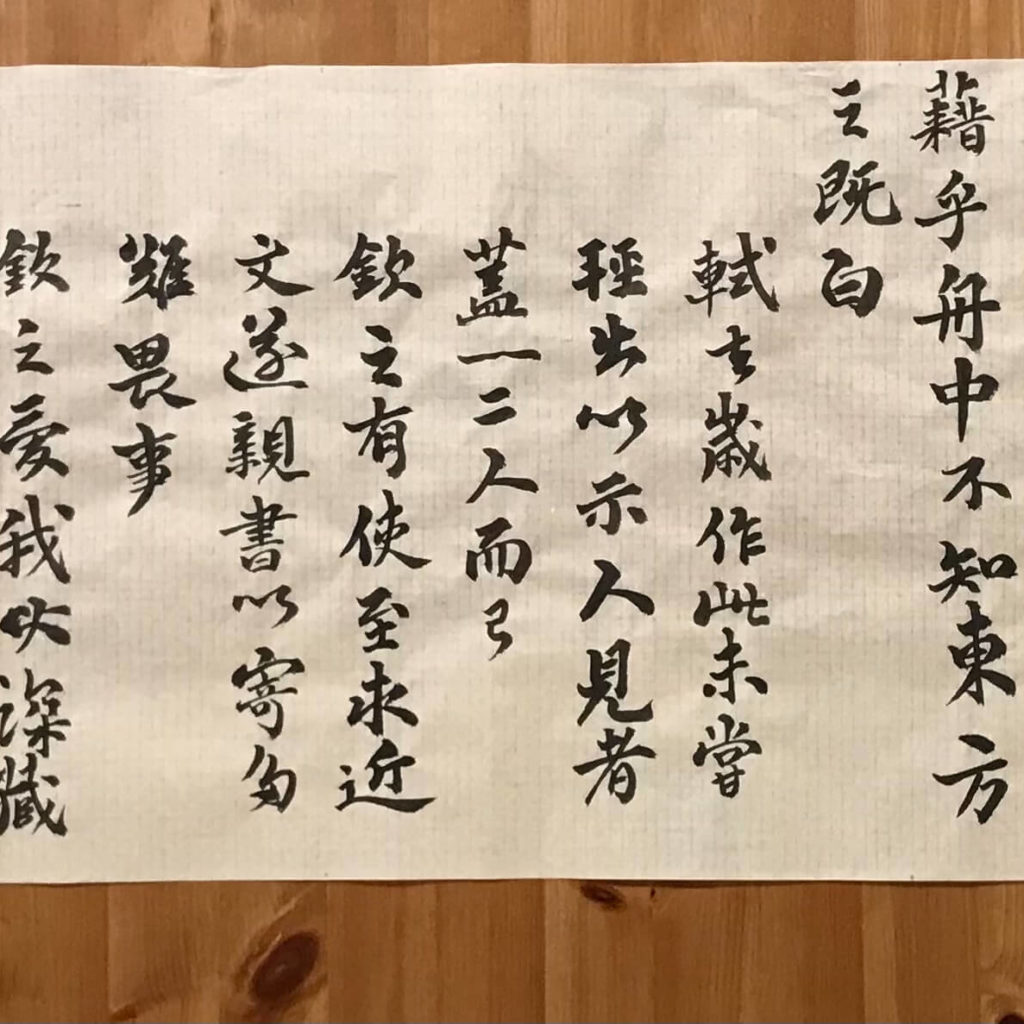 藉乎舟中不知東方
之既白
軾去歲作此未嘗
輕出以示人見者
蓋一二人而已
欽之有使至求近
文遂親書以寄多
難畏事
欽之愛我必深藏